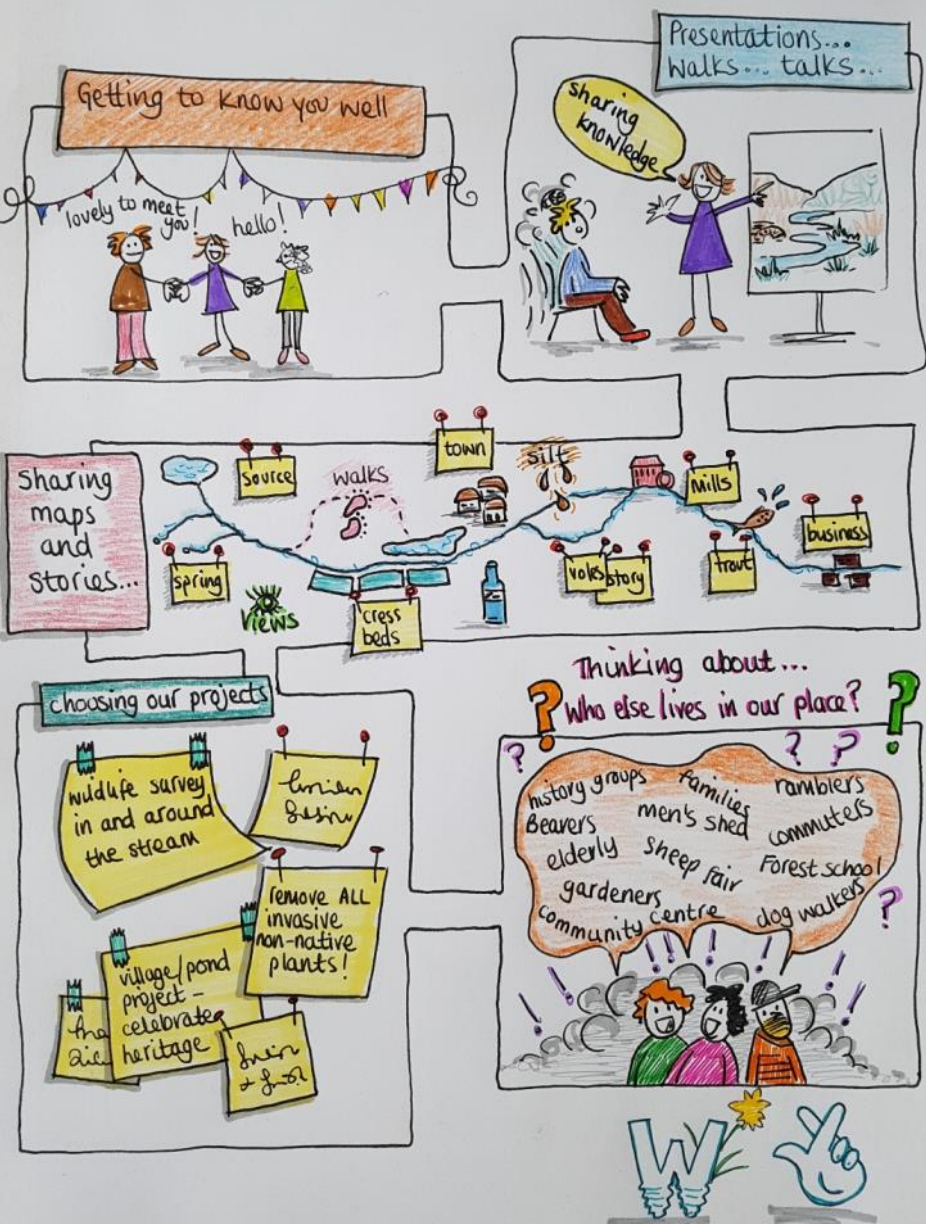 Getting to know you well
lovely to meet
you!
hello!
Presentations...
Walks... talks...
sharing
knowledge
Sharing
maps
and
stories...
source
walks
town
silt
mills
business
spring
views
cress
beds
voles
story
trout
choosing our projects
wildlife survey
in and around
the stream
remove ALL
invasive
non-native
plants!
village/pond
project-
celebrate
heritage
Thinking about...
Who else lives in our place?
? ?
? ? ?
history groups
families
ramblers
Beavers
men's shed
commuters
elderly
sheep fair
Forest school
gardeners
community centre
dog walkers
?
! ! ! ! ! ! ! !
W